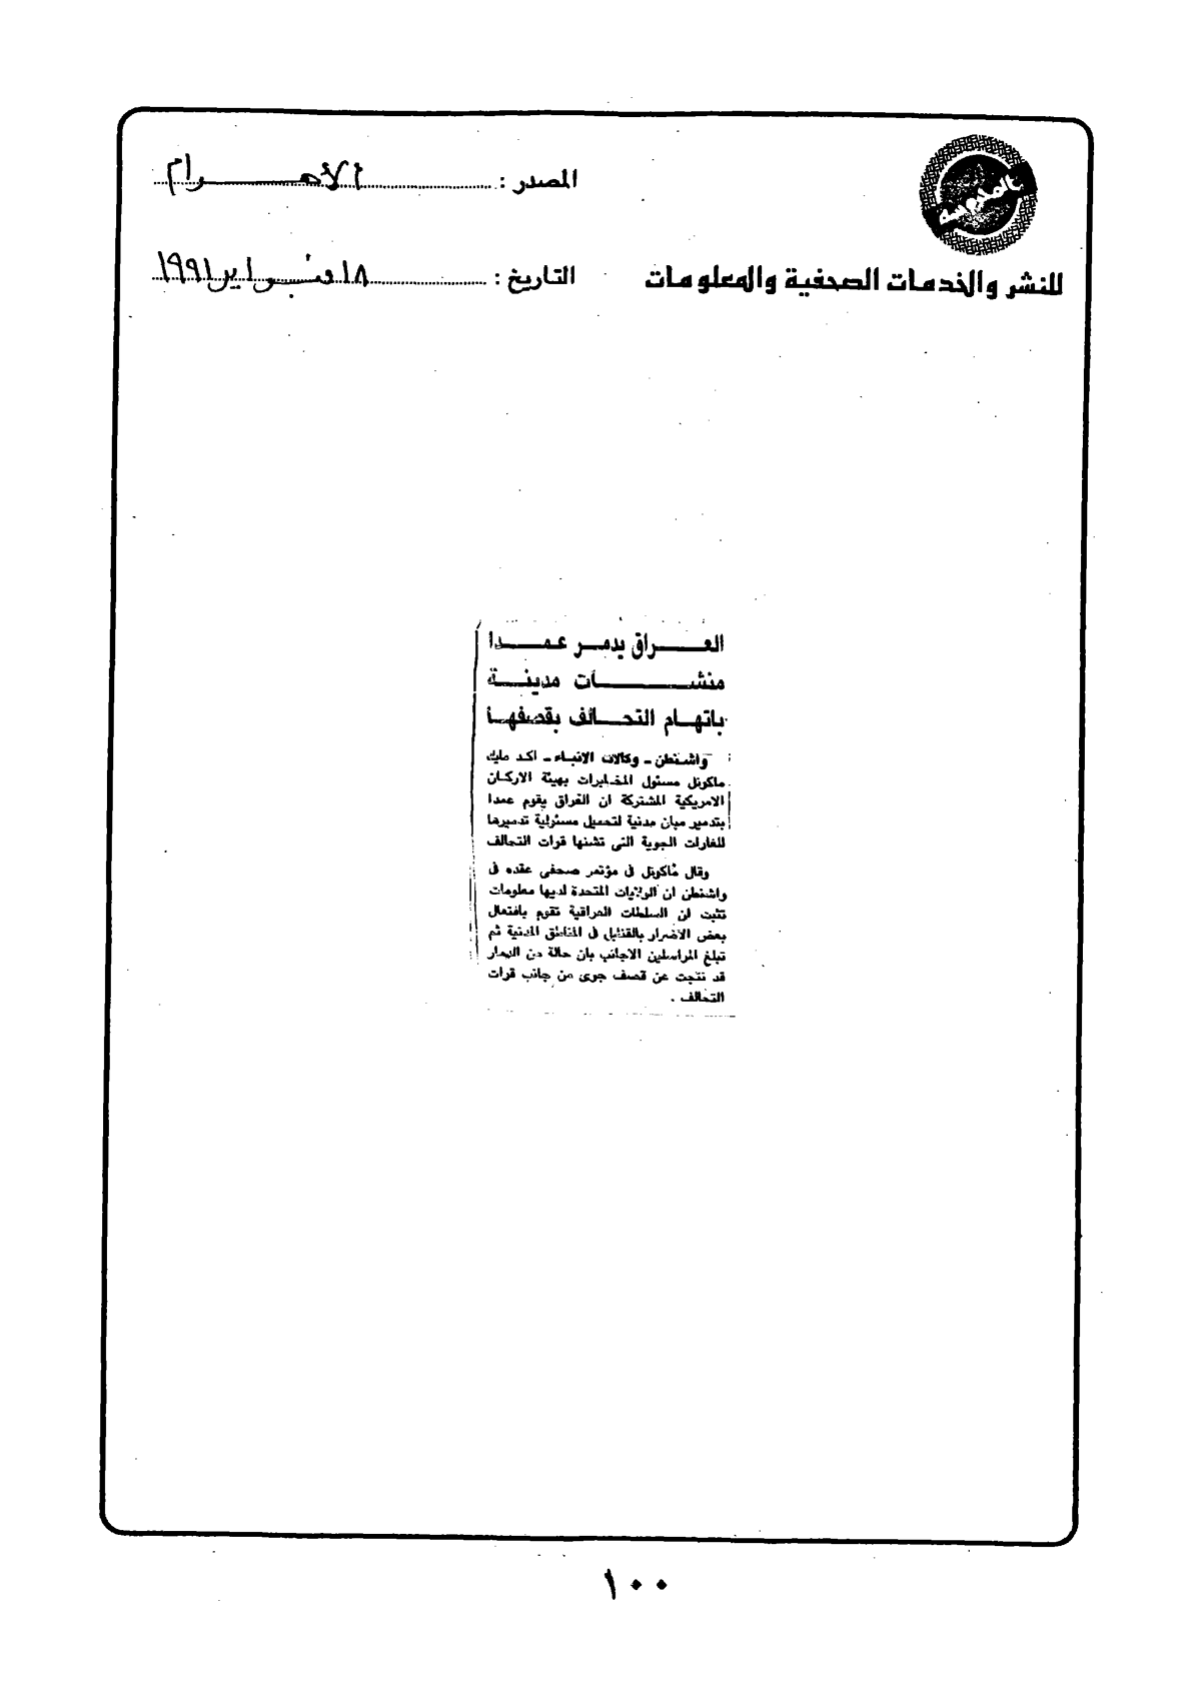 المحروسة
المصدر : الأهرام
للنشر والخدمات الصحفية والمعلومات
التاريخ : ١٨ فبراير ١٩٩١
العراق يدمر عمدا
منشات مدينة
باتهام التحالف بقصفها
واشنطن - وكالات الانباء - اكد مايك
ماكونل مسئول المخابرات بهيئة الاركان
الامريكية المشتركة ان العراق يقوم عمدا
بتدمير مبان مدنية لتحميل مسئولية تدميرها
للغارات الجوية التى تشنها قوات التحالف
وقال ماكونل فى مؤتمر صحفى عقده فى
واشنطن ان الولايات المتحدة لديها معلومات
تثبت ان السلطات العراقية تقوم بافتعال
بعض الاضرار بالقنابل فى المناطق المدنية ثم
تبلغ المراسلين الاجانب بان حالة من الدمار
قد نتجت عن قصف جوى من جانب قوات
التحالف .
١٠٠